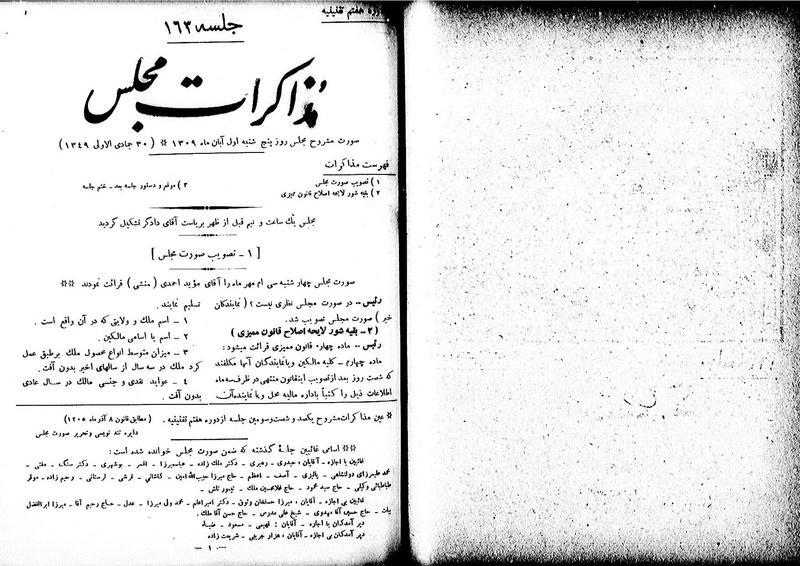 دوره هفتم تقنینیه
جلسه ۱۶۳
مذاکرات مجلس
صورت مشروح مجلس روز پنج شنبه اول آبان ماه ۱۳۰۹ ** ( ۳۰ جمادی الاولی ۱۳۴۹ )
فهرست مذاکرات
۱ ) تصویب صورت مجلس
۲ ) بقیه شور لایحه اصلاح قانون ممیزی
۳ ) موقع و دستور جلسه بعد - ختم جلسه
مجلس یک ساعت و نیم قبل از ظهر بریاست آقای دادگر تشکیل گردید
[ ۱ - تصویب صورت مجلس ]
صورت مجلس چهار شنبه سی ام مهر ماه را آقای مؤید احمدی ( منشی ) قرائت نمودند **
رئیس - در صورت مجلس نظری نیست ؟ ( نمایندگان
خیر ) صورت مجلس تصویب شد .
( ۲ - بقیه شور لایحه اصلاح قانون ممیزی )
رئیس - ماده چهارم قانون ممیزی قرائت میشود :
ماده چهارم - کلیه مالکین و یا نمایندگان آنها مکلفند
که شصت روز بعد از تصویب اینقانون منتهی در ظرف سه ماه
اطلاعات ذیل را کتباً باداره مالیه محل و یا نماینده آن
تسلیم نمایند .
۱ - اسم ملک و ولایتی که در آن واقع است .
۲ - اسم یا اسامی مالکین .
۳ - میزان متوسط انواع محصول ملک بر طبق عمل
کرد ملک در سه سال از سالهای اخیر بدون آفت .
۴ - عواید نقدی و جنسی مالک در سال عادی
بدون آفت .
* عین مذاکرات مشروح یکصد و شصت و سومین جلسه از دوره هفتم تقنینیه . ( مطابق قانون ۸ آذر ماه ۱۳۰۵ )
دایره تند نویسی و تحریر صورت مجلس
** اسامی غائبین جلسه گذشته که ضمن صورت مجلس خوانده شده است :
غائبین با اجازه - آقایان : حیدری - رهبری - دکتر ملک زاده - عباس میرزا - افسر - بوشهری - دکتر سنک - مفتی -
محمد علیمیرزای دولتشاهی - پالیزی - آصف - اعظم - حاج میرزا حبیب الله امین - کاشانی - قرشی - لرستانی - رحیم زاده - موقر
طباطبائی وکیلی - حاج سید محمود - حاج غلامحسین ملک - تیمور تاش -
غائبین بی اجازه - آقایان : میرزا حسنخان وثوق - دکتر امیر اعلم - محمد ولی میرزا - عدل - حاج رحیم آقا - میرزا ابوالفضل
بیات - حاج حسین آقا مهدوی - شیخ علی مدرس - حاج حسن آقا ملک .
دیر آمدگان با اجازه - آقایان : فهیمی - مسعود -
دیر آمدگان بی اجازه - آقایان : هزار جریبی - شریعت زاده
- ۱ -